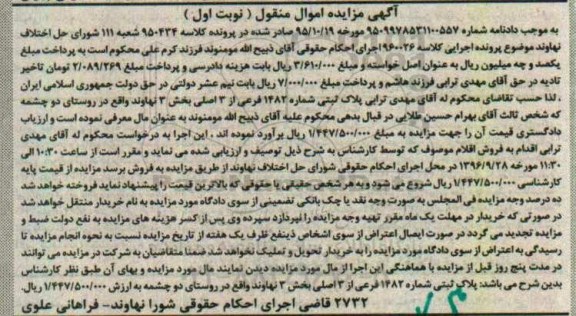 آگهی مزایده اموال منقول ( نوبت اول )
به موجب دادنامه شماره ۹۵۰۹۹۷۸۵۳۱۱۰۰۵۵۷ مورخه ۹۵/۱۰/۱۹ صادر شده در پرونده کلاسه ۹۵۰۴۳۴ شعبه ۱۱۱ شورای حل اختلاف
نهاوند موضوع پرونده اجرایی کلاسه ۹۶۰۰۲۶ اجرای احکام حقوقی آقای ذبیح الله مومنوند فرزند کرم علی محکوم است به پرداخت مبلغ
یکصد و چه میلیون ریال به عنوان اصل خواسته و مبلغ ۳/۶۱۰/۰۰۰ ریال بابت هزینه دادرسی و پرداخت مبلغ ۲/۰۸۹/۳۶۹ تومان تاخیر
تادیه در حق آقای مهدی ترابی فرزند هاشم و پرداخت مبلغ ۷/۰۰۰/۰۰۰ ریال بابت نیم عشر دولتی در حق دولت جمهوری اسلامی ایران
، لذا حسب تقاضای محکوم له آقای مهدی ترابی پلاک ثبتی شماره ۱۴۸۲ فرعی از ۳ اصلی بخش ۳ نهاوند واقع در روستای دو چشمه
که شخص ثالث آقای بهرام حسین طلایی در قبال بدهی محکوم علیه آقای ذبیح الله مومنوند به عنوان مال معرفی نموده است و ارزیاب
دادگستری قیمت آن را جهت مزایده به مبلغ ۱/۴۴۷/۵۰۰/۰۰۰ ریال برآورد نموده اند ، این اجرا به درخواست محکوم له آقای مهدی
ترابی اقدام به فروش اقلام موصوف که توسط کارشناس به شرح ذیل توصیف و ارزیابی شده می نماید و مقرر است از ساعت ۱۰:۳۰ الی
۱۱:۳۰ مورخه ۱۳۹۶/۹/۲۸ در محل اجرای احکام حقوقی شورای حل اختلاف نهاوند از طریق مزایده به فروش برسد مزایده از قیمت پایه
کارشناسی ۱/۴۴۷/۵۰۰/۰۰۰ ریال شروع می شود و به هر شخص حقیقی یا حقوقی که بالاترین قیمت را پیشنهاد نماید فروخته خواهد شد
ده درصد وجه مزایده فی المجلس به صورت وجه نقد یا چک بانکی تضمینی از سوی دادگاه مورد مزایده به نام خریدار منتقل خواهد شد
در صورتی که خریدار در مهلت یک ماه مقرر تهیه وجه مزایده را نپردازد سپرده وی پس از کسر هزینه های مزایده به نفع دولت ضبط و
مزایده تجدید می گردد در صورت ایصال اعتراض از سوی اشخاص ذینفع ظرف یک هفته از تاریخ مزایده نسبت به نحوه انجام مزایده تا
رسیدگی به اعتراض از سوی دادگاه مورد مزایده را به خریدار تحویل و تملیک نخواهد شد ضمنا متقاضیان به شرکت در مزایده می توانند
در مدت پنج روز قبل از مزایده با هماهنگی این اجرا از مال مورد مزایده دیدن نمایند مال مورد مزایده و بهای آن طبق نظر کارشناس
بدین شرح می باشد: پلاک ثبتی شماره ۱۴۸۲ فرعی از ۳ اصلی بخش ۳ نهاوند واقع در روستای دو چشمه به ارزش ۱/۴۴۷/۵۰۰/۰۰۰ ریال.
۲۷۳۲ قاضی اجرای احکام حقوقی شورا نهاوند- فراهانی علوی